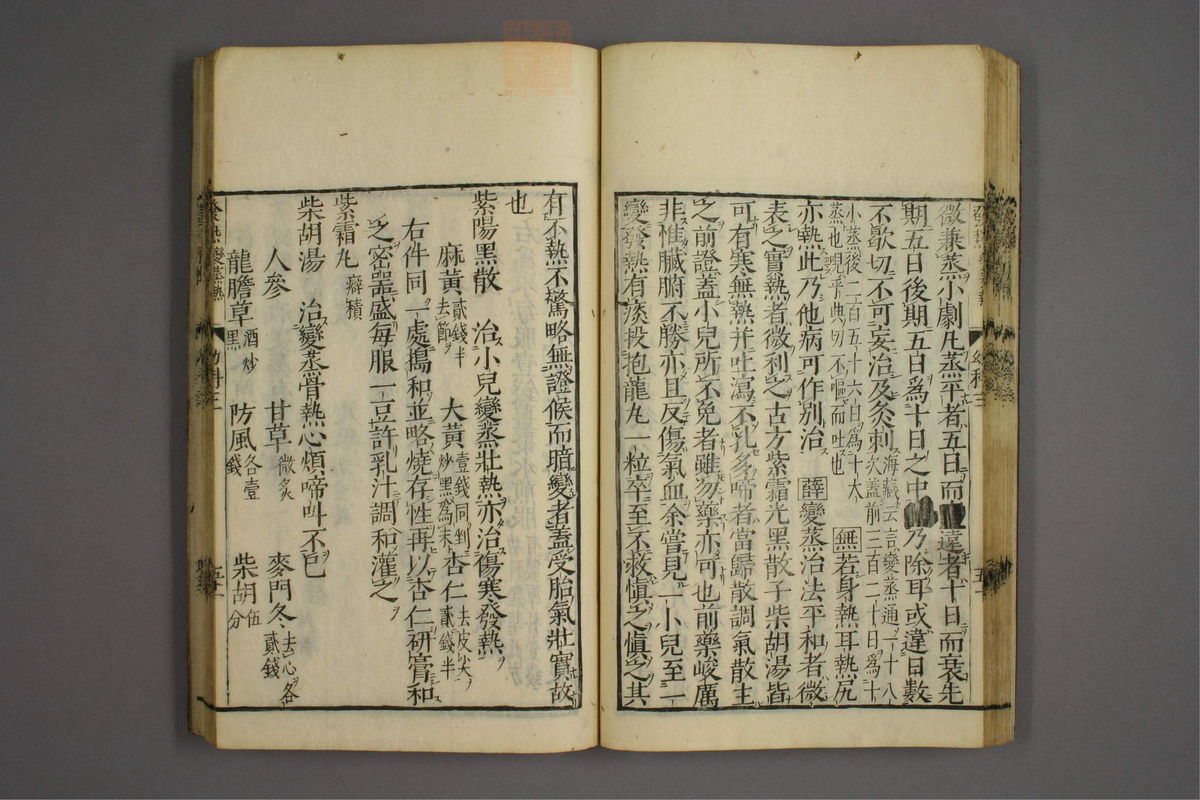 微兼蒸小劇凡蒸平者五日而遠者十日而衰先
期五日後期五日爲十日之中乃除耳或違日數
不歇切不可妄治及灸刺海藏云言變蒸通一十八
小蒸後二百五十六日爲十大蒸也現乎典切不嘔而吐也
欠蓋前三百二十日爲十
無若身熱耳熱尻
亦熱此乃他病可作别治薛變蒸治法平和者微
表之實熱者微利之古方紫霜光黑散子柴胡湯皆
可有寒無熱并吐瀉不乳多啼者當歸散調氣散主
之前證蓋小兒所不免者雖勿藥亦可也前藥峻厲
非惟臟腑不勝亦且反傷氣血余嘗見一小兒至一
變發熱有痰投抱龍丸一粒卒至不救愼之愼之其
有不熱不驚略無證候而暗變者蓋受胎氣壯實故
也
紫陽黑散 治小兒變蒸壯熱亦治傷寒發熱
麻黃貳錢半去節 大黃壹錢同剉炒黑爲末 杏仁去皮尖貳錢半
右件同一處搗和並略燒存性再以杏仁研膏和
之密器盛每服一豆許乳汁調和灌之
紫霜丸 癖積
柴胡湯 治變蒸骨熱心煩啼叫不已
人參 甘草微炙 麥門冬去心各貳錢
龍膽草酒炒黑 防風各壹錢 柴胡伍分